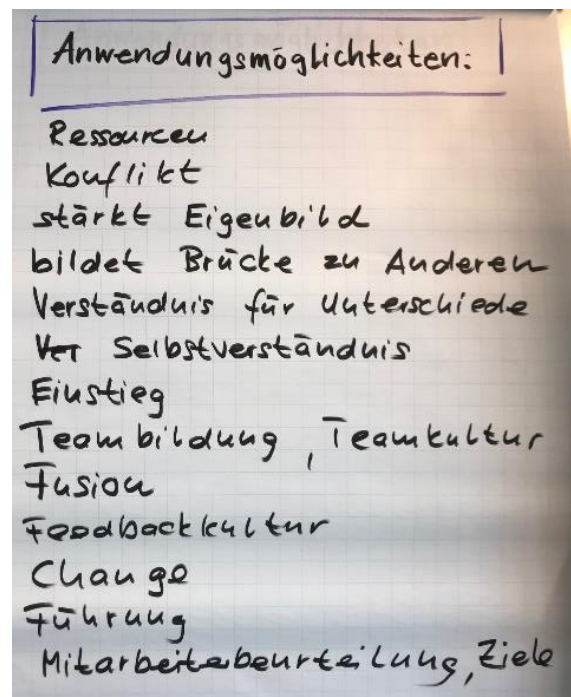 Anwendungsmöglichkeiten:
Ressourcen
Konflikt
stärkt Eigenbild
bildet Brücke zu Anderen
Verständnis für Unterschiede
Selbstverständnis
Einstieg
Teambildung, Teamkultur
Fusion
Feedbackkultur
Change
Führung
Mitarbeiterbeurteilung, Ziele